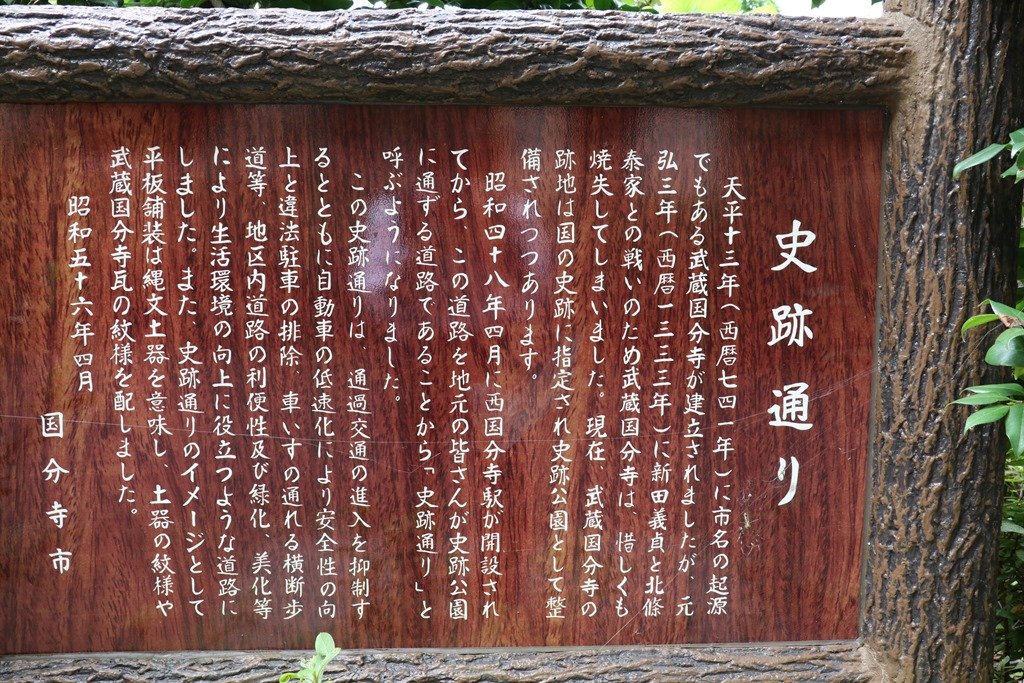 史跡通り
天平十三年(西暦七四一年)に市名の起源
でもある武蔵国分寺が建立されましたが、元
弘三年(西暦一三三三年)に新田義貞と北條
泰家との戦いのため武蔵国分寺は、惜しくも
焼失してしまいました。現在、武蔵国分寺の
跡地は国の史跡に指定され史跡公園として整
備されつつあります。
昭和四十八年四月に西国分寺駅が開設され
てから、この道路を地元の皆さんが史跡公園
に通ずる道路であることから「史跡通り」と
呼ぶようになりました。
この史跡通りは、通過交通の進入を抑制す
るとともに自動車の低速化により安全性の向
上と違法駐車の排除 車いすの通れる横断歩
道等、地区内道路の利便性及び緑化、美化等
により生活環境の向上に役立つような道路に
しました。また、史跡通りのイメージとして
平板舗装は縄文土器を意味し、土器の紋様や
武蔵国分寺瓦の紋様を配しました。
昭和五十六年四月
国分寺市